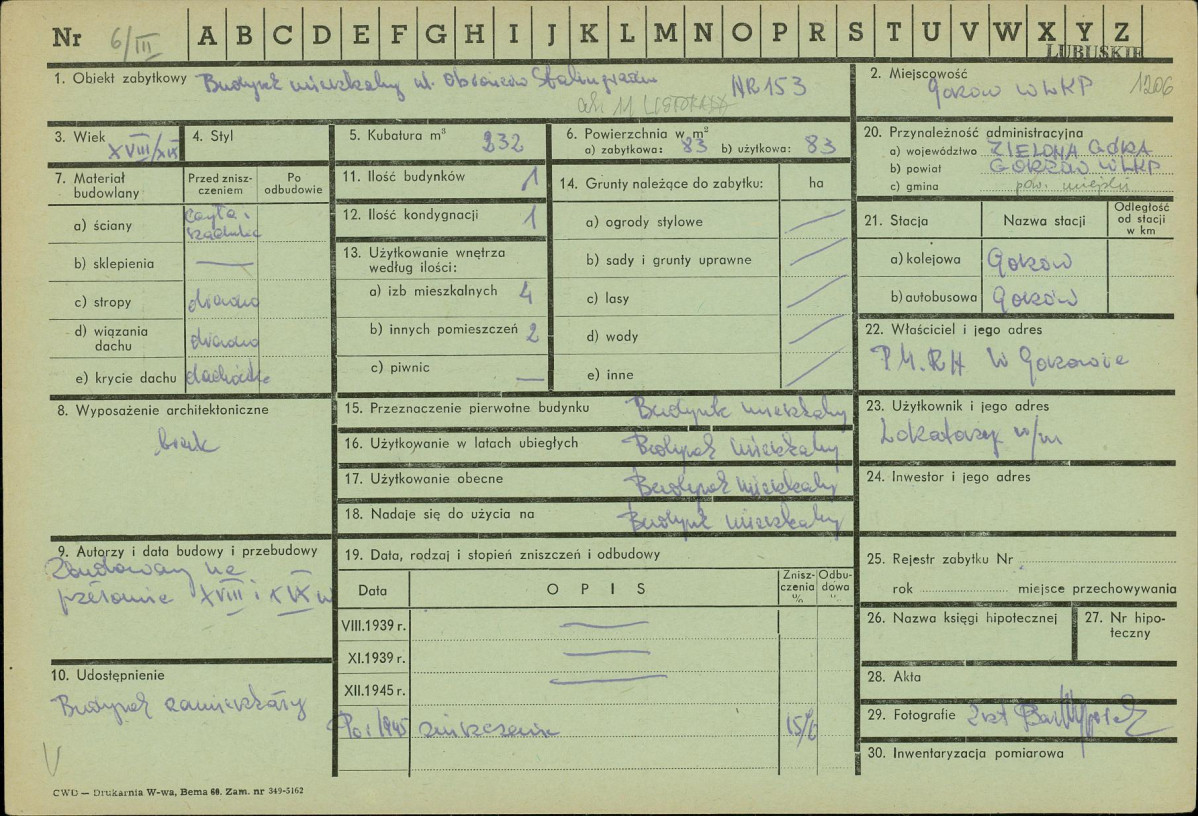 Nr 6/III A B C D E F G H I J K L M N O P R S T U V W X Y Z
LUBUSKIE
1. Obiekt zabytkowy Budynek mieszkalny ul. Obrońców Stalingradu NR 153
11 LISTOPADA
2. Miejscowość
Gorzów WLKP 1206
3. Wiek
XVIII/XIX
4. Styl
5. Kubatura m³ 232
6. Powierzchnia w m²
a) zabytkowa: 83 b) użytkowa: 83
7. Materiał budowlany
Przed zniszczeniem
Po odbudowie
a) ściany cegła i
b) sklepienia —
c) stropy drewno
d) wiązania dachu drewno
e) krycie dachu dachówka
8. Wyposażenie architektoniczne
brak
9. Autorzy i data budowy i przebudowy
Zbudowany na
przełomie XVIII i XIX w
10. Udostępnienie
Budynek zamieszkały
V
11. Ilość budynków 1
12. Ilość kondygnacji 1
13. Użytkowanie wnętrza
według ilości:
a) izb mieszkalnych 4
b) innych pomieszczeń 2
c) piwnic —
14. Grunty należące do zabytku: ha
a) ogrody stylowe
b) sady i grunty uprawne
c) lasy
d) wody
e) inne
15. Przeznaczenie pierwotne budynku Budynek mieszkalny
16. Użytkowanie w latach ubiegłych Budynek mieszkalny
17. Użytkowanie obecne Budynek mieszkalny
18. Nadaje się do użycia na Budynek mieszkalny
19. Data, rodzaj i stopień zniszczeń i odbudowy
Data OPIS Zniszczenia % Odbudowa %
VIII.1939 r. —
XI.1939 r. —
XII.1945 r. —
Po r 1945 zniszczenie 15%
20. Przynależność administracyjna
a) województwo ZIELONA GÓRA
b) powiat GORZÓW WLKP
c) gmina pow. miejski
21. Stacja Nazwa stacji Odległość od stacji w km
a) kolejowa Gorzów
b) autobusowa Gorzów
22. Właściciel i jego adres
P.M.R.N W Gorzowie
23. Użytkownik i jego adres
Lokatorzy w/m
24. Inwestor i jego adres
25. Rejestr zabytku Nr
rok miejsce przechowywania
26. Nazwa księgi hipotecznej
27. Nr hipoteczny
28. Akta
29. Fotografie 2 szt
30. Inwentaryzacja pomiarowa
CWD — Drukarnia W-wa, Bema 60. Zam. nr 349-5162